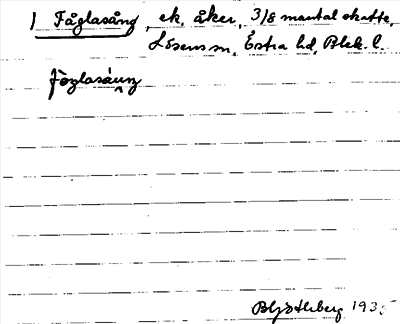 1 Fåglasång, ek. åker, 3/8 mantal skatte,
Lösens sn, Östra hd, Blek. l.
fòglasáuŋ